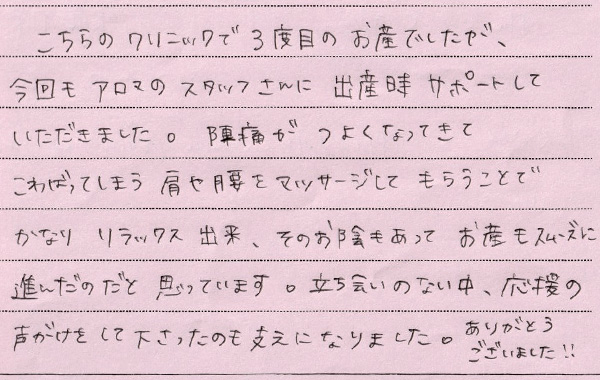 こちらの クリニックで 3度目の お産でしたが、
今回も アロマの スタッフさんに 出産時 サポートして
いただきました。 陣痛が つよくなってきて
こわばってしまう 肩や腰を マッサージして もらうことで
かなり リラックス 出来、そのお陰もあって お産もスムーズに
進んだのだと 思っています。立ち会いのない中、応援の
声がけを して下さったのも支えになりました。ありがとう
ございました!!